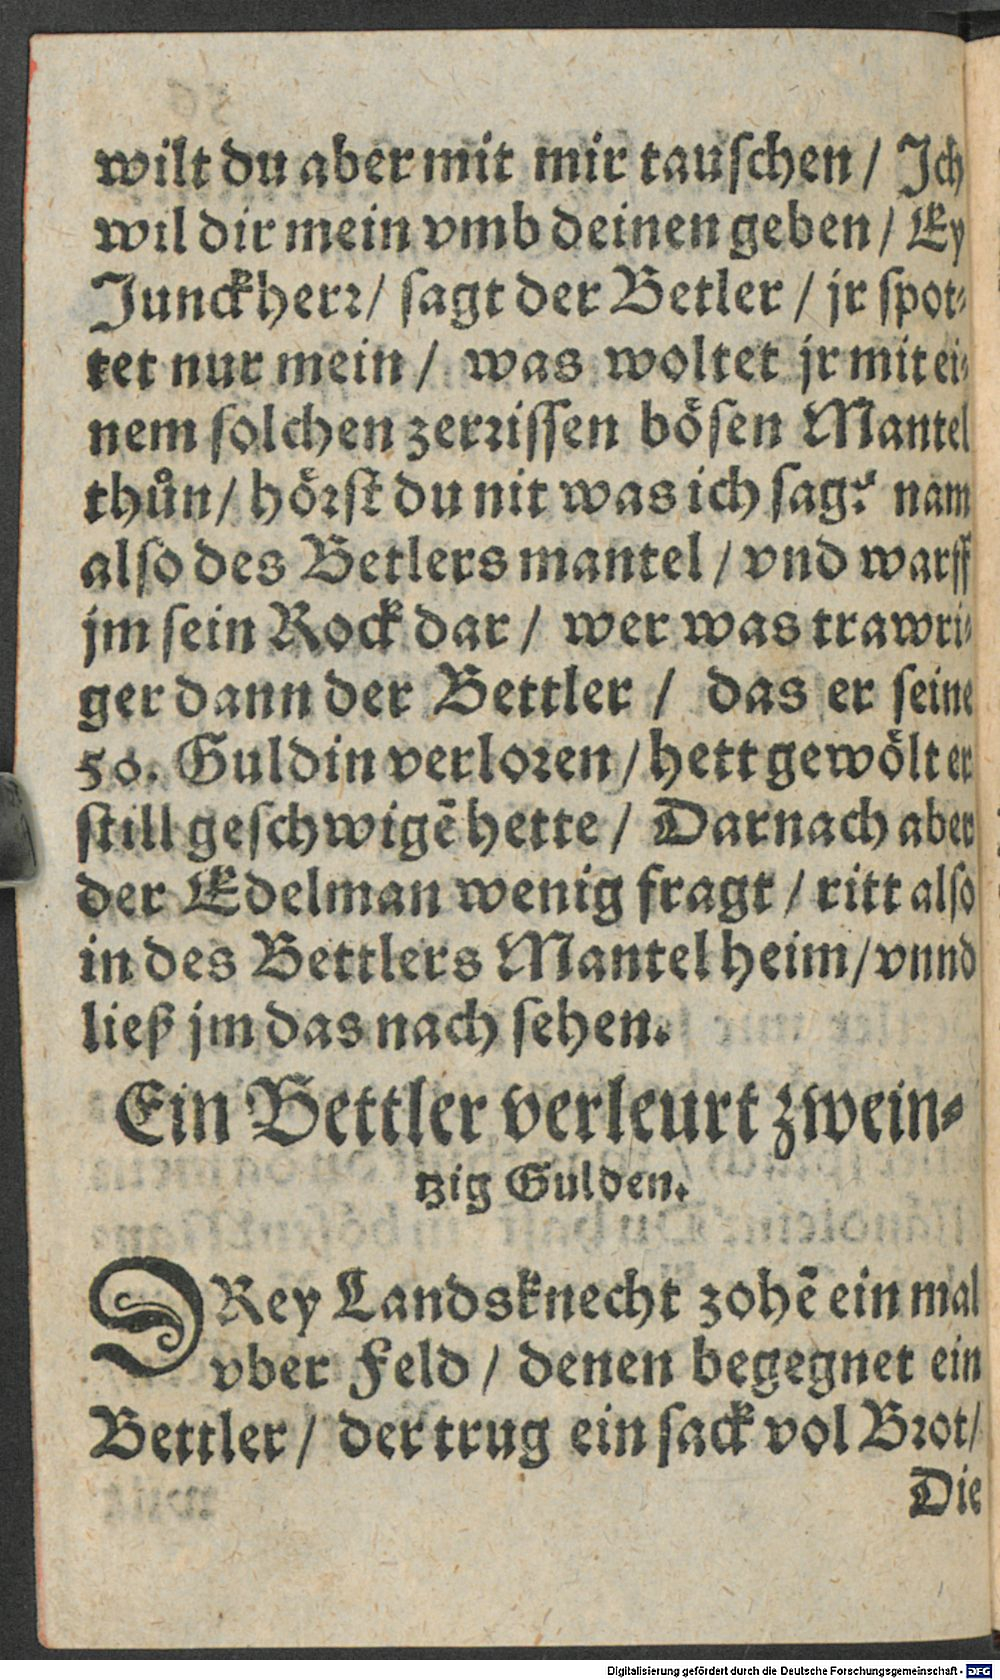 wilt du aber mit mir tauschen / Ich
wil dir mein vmb deinen geben / Ey
Junckherr / sagt der Betler / jr spot-
tet nur mein / was woltet jr mit ei-
nem solchen zerrissen bösen Mantel
thůn / hörst du nit was ich sag? nam
also des Betlers mantel / vnd warff
jm sein Rock dar / wer was trawri-
ger dann der Bettler / das er seine
50. Guldin verloren / hett gewölt er
still geschwigẽ hette / Darnach aber
der Edelman wenig fragt / ritt also
in des Bettlers Mantel heim / vnnd
ließ jm das nach sehen.
Ein Bettler verleurt zwein-
tzig Gulden.
DRey Landsknecht zohẽ ein mal
vber Feld / denen begegnet ein
Bettler / der trug ein sack vol Brot /
Die
Digitalisierung gefördert durch die Deutsche Forschungsgemeinschaft - DFG